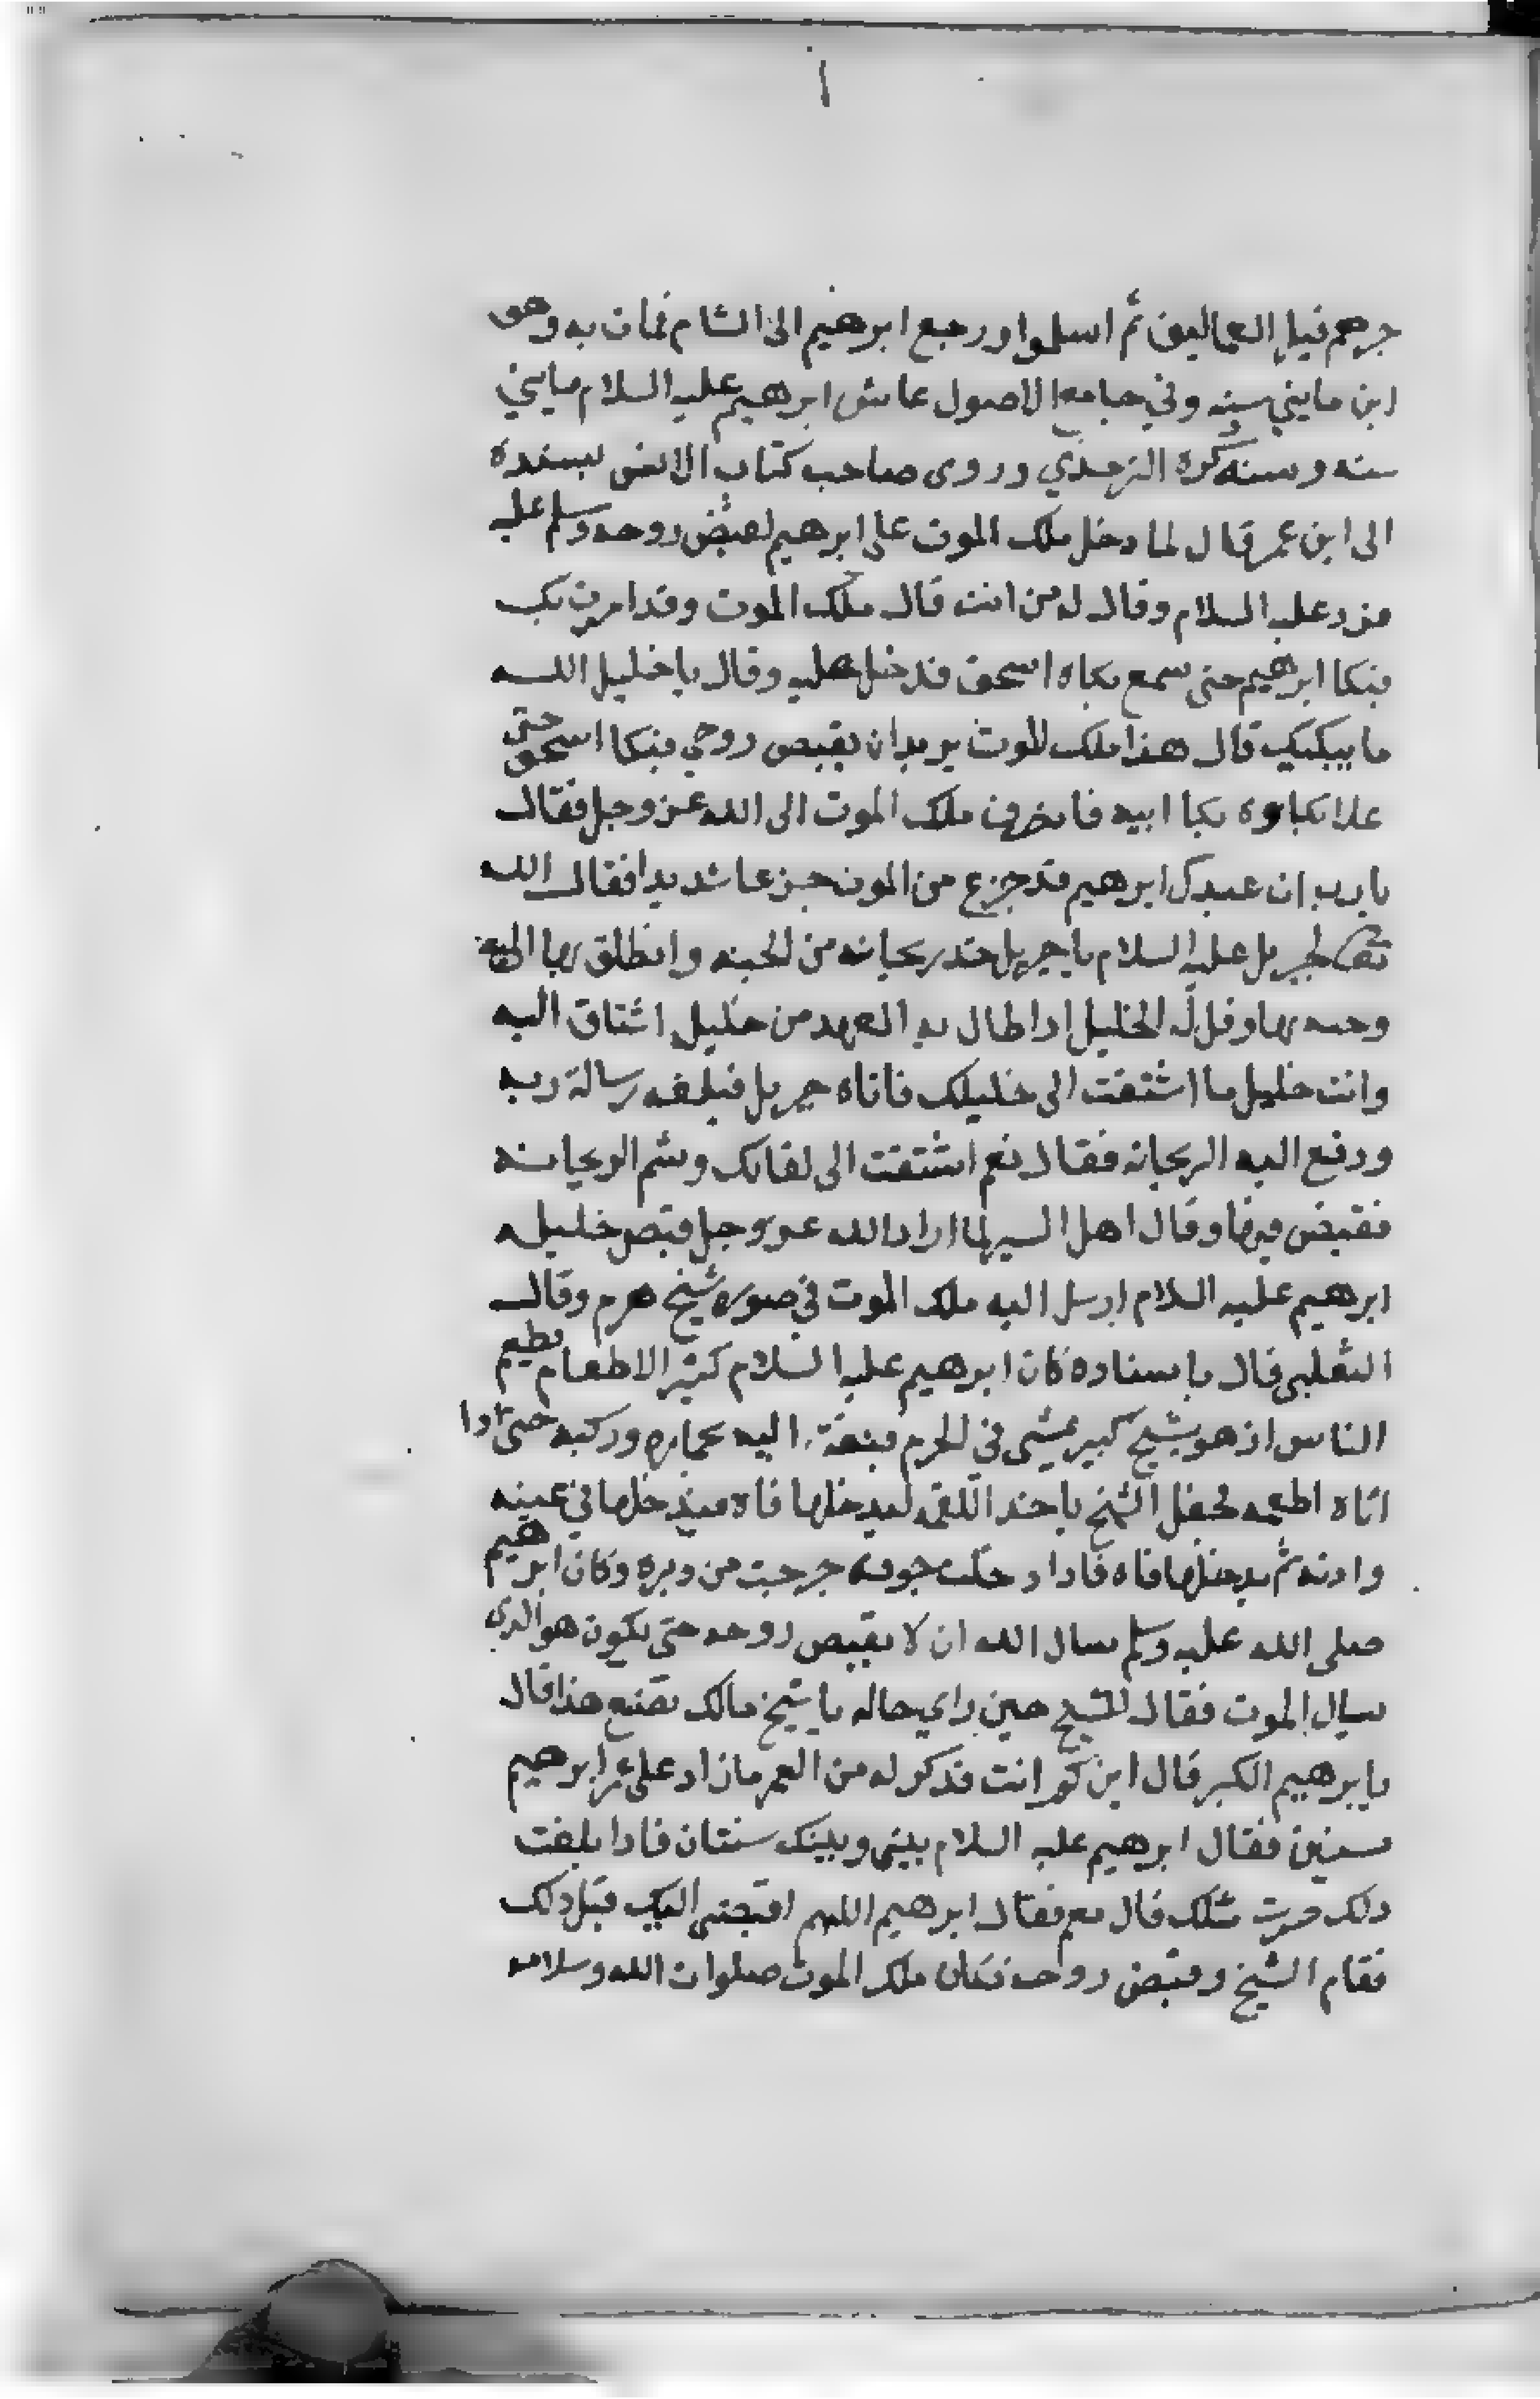 ١
جرهم قبل العماليق ثم اسلموا ورجع ابرهيم الى الشام فمات به وهو
ابن مايتي سنه وفي جامع الاصول عاش ابرهيم عليه السلام مايتي
سنه وسنه ذكره الترمذي وروى صاحب كتاب الانس بسنده
الى ابن عمر قال لما دخل ملك الموت على ابرهيم لقبض روحه وسلم عليه
فرد عليه السلام وقال له من انت قال ملك الموت وقد امرت بك
فبكا ابرهيم حتى سمع بكاه اسحق فدخل عليه وقال يا خليل الله
ما يبكيك قال هذا ملك الموت يريد ان يقبض روحي فبكا اسحق حتى
علا بكاوه بكا ابيه فانصرف ملك الموت الى الله عز وجل فقال
يا رب ان عبدك ابرهيم قد جزع من الموت جزعا شديدا فقال الله
تعالى لجبريل عليه السلام يا جبريل خذ ريحانه من الجنه وانطلق بها اليه
وحيه بها وقل له الخليل اذا طال به العهد من خليل اشتاق اليه
وانت خليل ما اشتقت الى خليلك فاتاه جبريل فبلغه رسالة ربه
ودفع اليه الريحانه فقال نعم اشتقت الى لقائك وشم الريحانه
فقبض فيها وقال اهل السير لما اراد الله عز وجل قبض خليله
ابرهيم عليه السلام ارسل اليه ملك الموت في صورة شيخ هرم وقال
الثعلبي قال باسناده كان ابرهيم عليه السلام كثير الاطعام يطعم
الناس اذ هو بشيخ كبير يمشي في الحرم فبعث اليه بحماره وركبه حتى اذا
اتاه اطعمه فجعل الشيخ ياخذ اللقمه ليدخلها فاه فيدخلها في عينه
واذنه ثم يدخلها فاه فاذا دخلت جوفه خرجت من دبره وكان ابرهيم
صلى الله عليه وسلم سال الله ان لا يقبض روحه حتى يكون هو الذي
يسال الموت فقال للشيخ حين راي حاله يا شيخ مالك تصنع هذا قال
يا ابرهيم الكبر قال ابن كم انت فذكر له من العمر ما زاد على عمر ابرهيم
سنين فقال ابرهيم عليه السلام بيني وبينك سنتان فاذا بلغت
ذلك صرت مثلك قال نعم فقال ابرهيم اللهم اقبضني اليك قبل ذلك
فقام الشيخ وقبض روحه فكان ملك الموت صلوات الله وسلامه